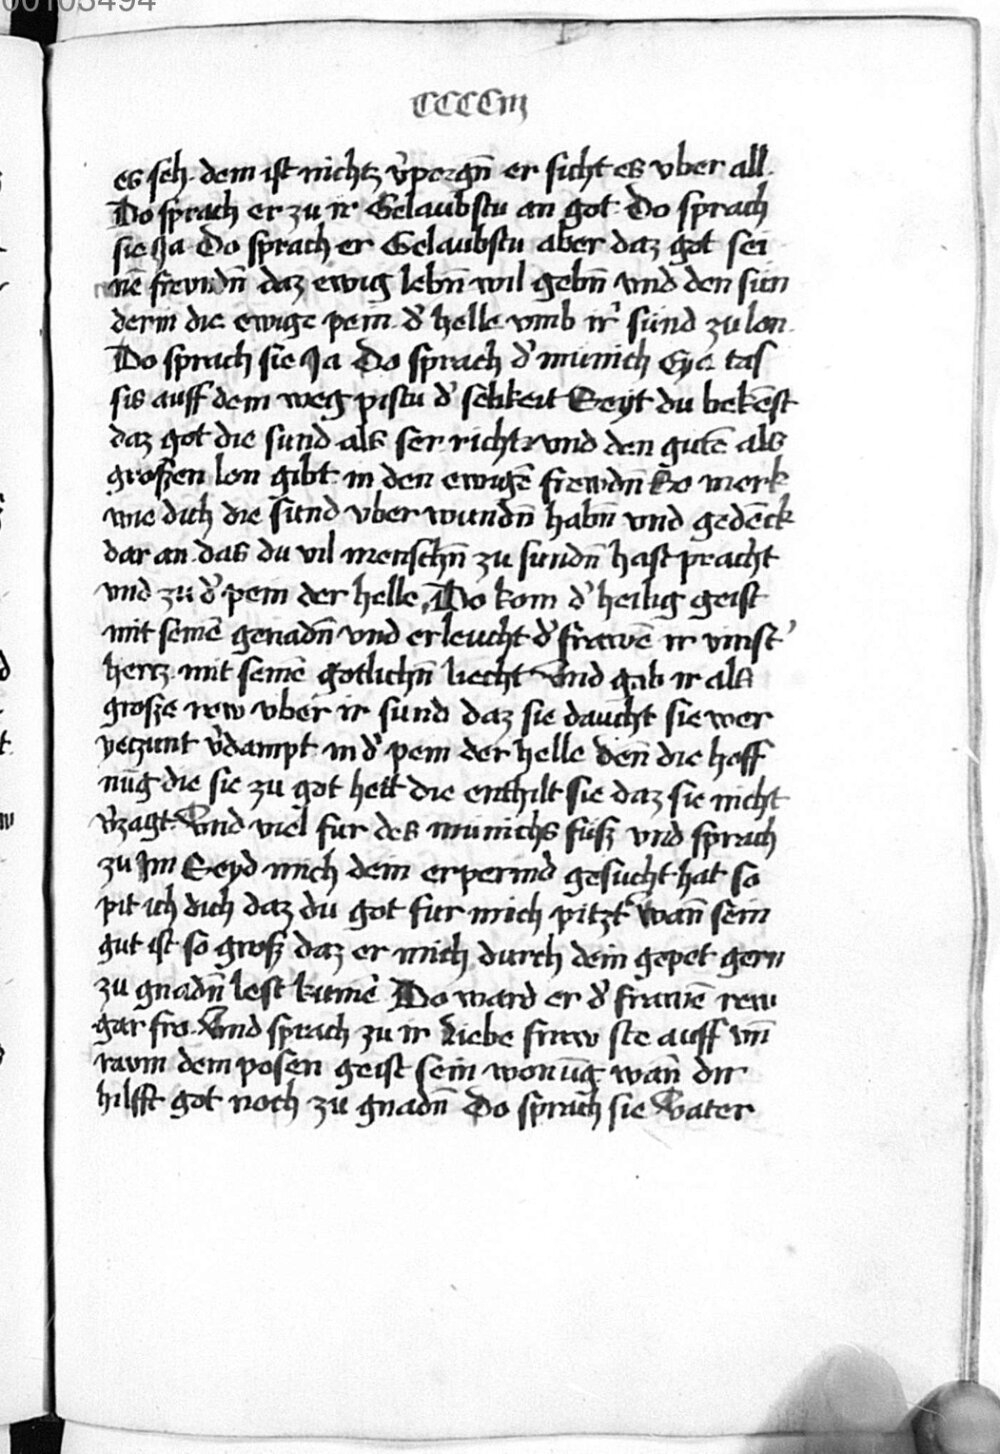 00103494
CCCCiij
es seh. dem ist nichtz v̉porgn̄ er sicht es vber all.
Do sprach er zu ir Gelaubstu an got. Do sprach
sie Ja Do sprach er Gelaubstu aber daz got sei
nē frewndn̄ daz ewig lebn̄ wil gebn̄ vnd den sün
dern die ewige pein d̉ helle vmb ir̉ sünd zu lon.
Do sprach sie Ja Do sprach d̉ münich Eya tas
sis auff dem weg pistu d̉ selikeit Seyt du bekēst
daz got die sund als ser richt vnd den gutē als
großen lon gibt in den ewigē frewdn̄ So merk
wie dich die sünd vber wundn̄ habn̄ vnd gedēck
dar an das du vil menschn̄ zu sundn̄ hast pracht
vnd zu d̉ pein der helle Do kom d̉ heilig geist
mit seinē genadn̄ vnd erleucht d̉ frawē ir vinst̉
hertz mit seinē gotlichn̄ liecht Vnd gab ir als
große rew vber ir sund daz sie daucht sie wer
yetzunt v̉dampt in d̉ pein der helle den̄ die hoff
nūg die sie zu got hett die enthilt sie daz sie nicht
v̉zagt. Vnd viel fur des münichs füß vnd sprach
zu Jm Seyd mich dein erpermd gesucht hat so
pit ich dich daz du got fur mich pitzt wan̄ sein
gut ist so groß daz er mich durch dein gepet gern
zu gnadn̄ lest kumē Do ward er d̉ frawē rew
gar fro. Vnd sprach zu ir Liebe fraw ste auff vn̄
raum dem posen geist sein wonūg wan̄ dir
hilfft got noch zu gnadn̄ Do sprach sie Vater